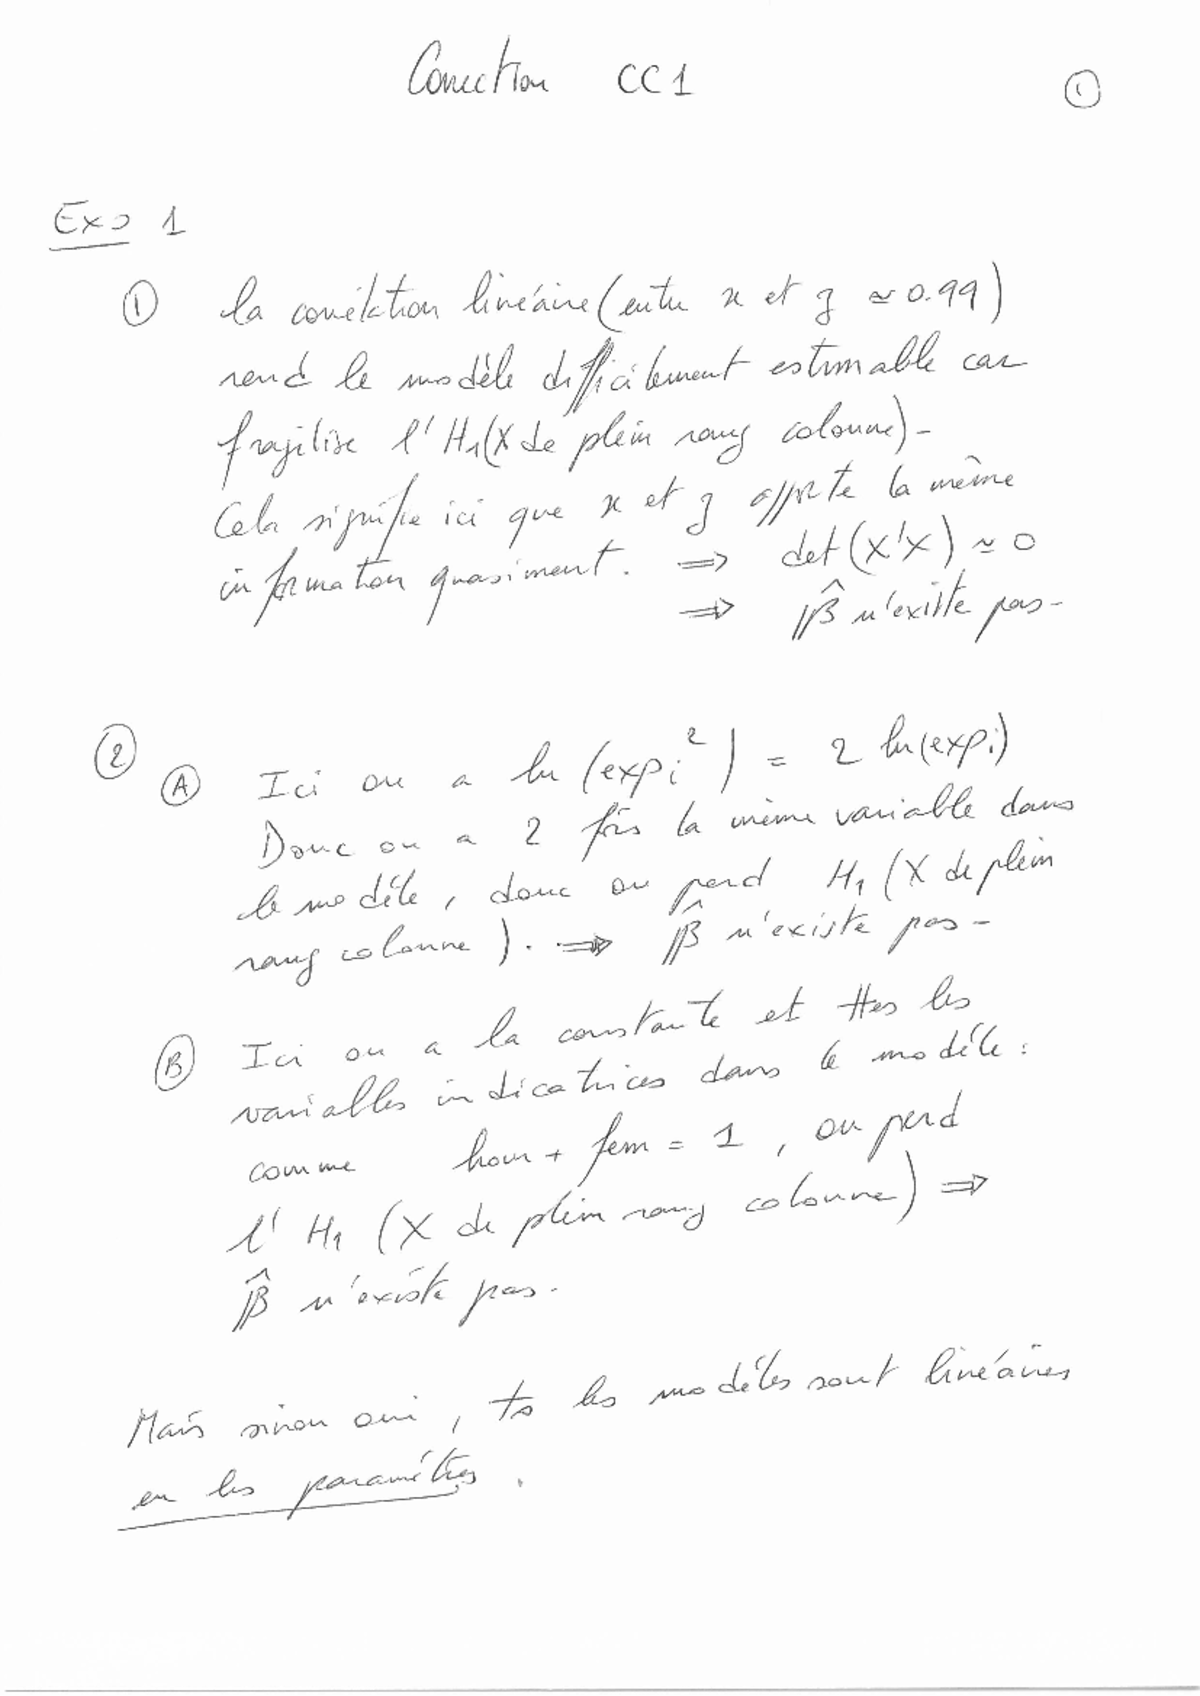 Correction CC1
①
Exo 1
① la corrélation linéaire (entre x et z ≃ 0.99)
rend le modèle difficilement estimable car
fragilise l'H₁ (X de plein rang colonne) -
Cela signifie ici que x et z apporte la même
information quasiment. ⇒ det (X'X) ≃ 0
⇒ β̂ n'existe pas -
② Ⓐ Ici on a ln (expᵢ²) = 2 ln(expᵢ)
Donc on a 2 fois la même variable dans
le modèle, donc on perd H₁ (X de plein
rang colonne). ⇒ β̂ n'existe pas -
Ⓑ Ici on a la constante et ttes les
variables indicatrices dans le modèle :
comme hom + fem = 1, on perd
l'H₁ (X de plein rang colonne) ⇒
β̂ n'existe pas.
Mais sinon oui, ts les modèles sont linéaires
en les paramètres.